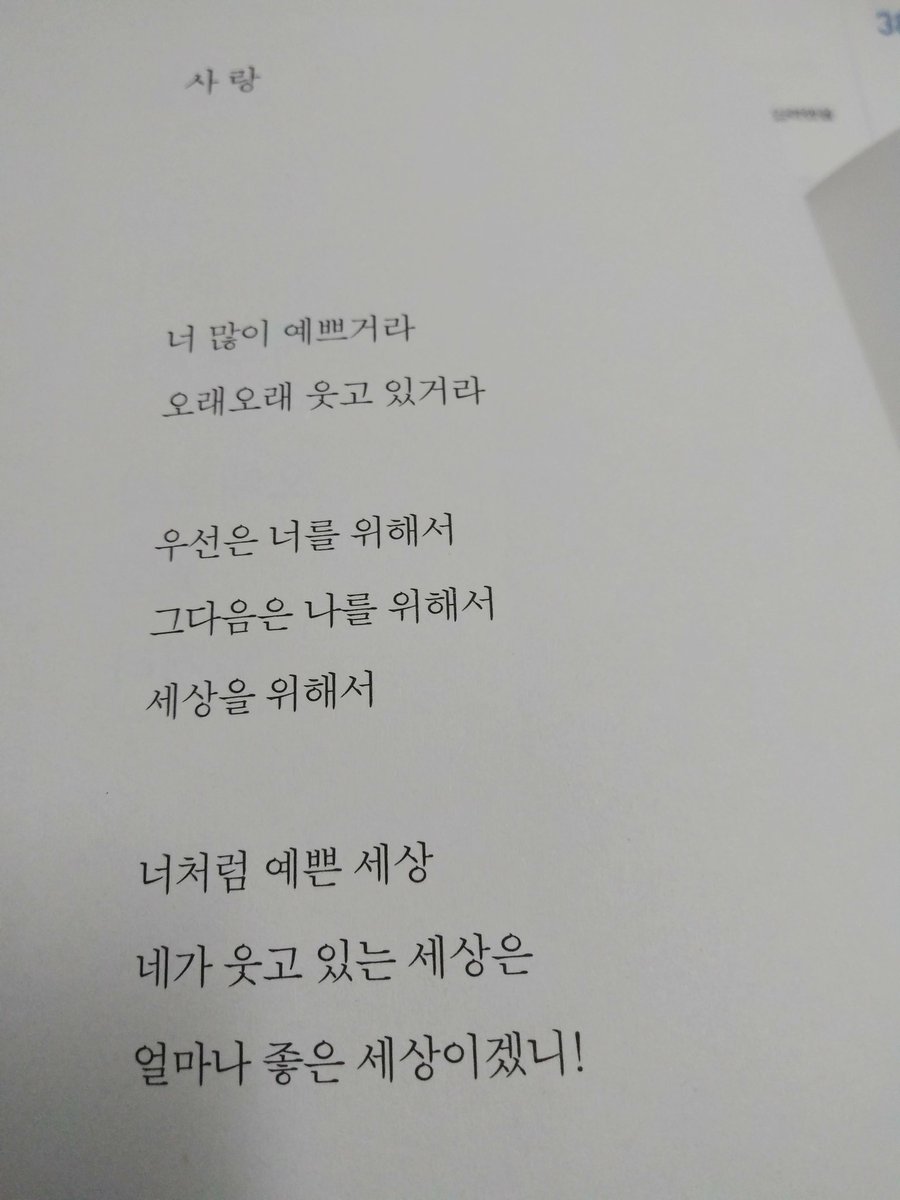 사랑
너 많이 예쁘거라
오래오래 웃고 있거라
우선은 너를 위해서
그다음은 나를 위해서
세상을 위해서
너처럼 예쁜 세상
네가 웃고 있는 세상은
얼마나 좋은 세상이겠니!